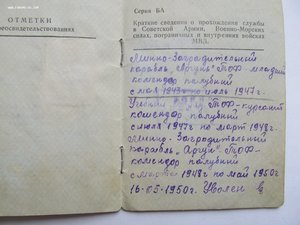 ОТМЕТКИ
освидетельствованиях
Серия БА
Краткие сведения о прохождении службы
в Советской Армии, Военно-Морских
силах, пограничных и внутренних войсках
МВД.
Минно-Заградительный
корабль „Аргунь" ТОФ- младший
комендор палубный
с мая 1943г по июль 1947г.
Учебный ТОФ- курсант
комендор палубный
с июля 1947г по март 1948г-
Минно- Заградительный
корабль „Аргун" ТОФ-
комендор палубный
с марта 1948г по май 1950г
16-05-1950г. Уволен в